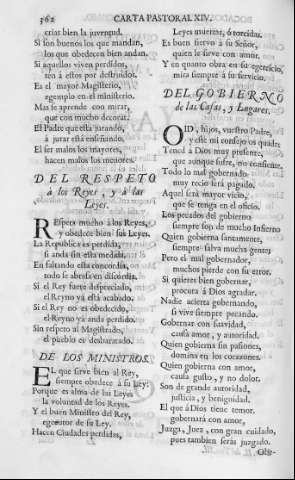 362
CARTA PASTORAL XIV.
criar bien la juventud.
Si son buenos los que mandan,
los que obedecen bien andan.
Si aquellos viven perdidos,
ten á estos por destruidos.
Es el mayor Magisterio,
egemplo en el ministerio.
Mas se aprende con mirar,
que con mucho decorar.
El Padre que está jurando,
á jurar está enseñando.
El ser malos los mayores,
hacen malos los menores.
DEL RESPETO
à los Reyes, y à las
Leyes.
REspeto mucho à los Reyes,
y obedece bien sus Leyes.
La Republica es perdida,
si anda sin esta medida.
En faltando esta concordia,
todo se abrasa en discordia.
Si el Rey fuere despreciado,
el Reyno yá está acabado.
Si el Rey no es obedecido,
el Reyno yá anda perdido.
Sin respeto al Magistrado,
el pueblo es desbaratado.
DE LOS MINISTROS.
EL que sirve bien al Rey,
siempre obedece à su Ley:
Porque es alma de las Leyes
la voluntad de los Reyes.
Y el buen Ministro del Rey,
egecutor de su Ley.
Hacen Ciudades perdidas,
Leyes muertas, ò torcidas.
Es buen siervo à su Señor,
quien le sirve con amor.
Y en quanto obra en su egercicio,
mira siempre à su servicio.
DEL GOBIERNO
de las Casas, y Lugares.
OID, hijos, vuestro Padre,
y esse mi consejo os quadre.
Tened à Dios muy presente,
que aunque sufre, no consiente.
Todo lo mal gobernado
muy recio será pagado.
Aquel será mayor vicio,
que se tenga en el oficio.
Los pecados del gobierno
siempre son de mucho Infierno
Quien gobierna santamente,
siempre salva mucha gente;
Pero el mal gobernador,
muchos pierde con su error.
Si quieres bien gobernar,
procura à Dios agradar.
Nadie acierta gobernando,
si vive siempre pecando.
Gobernar con suavidad,
causa amor, y autoridad.
Quien gobierna sin pasiones,
domina en los corazones.
Quien gobierna con amor,
causa gusto, y no dolor.
Son de grande autoridad,
justicia, y benignidad.
El que à Dios tiene temor,
gobernará con amor,
Juzga, Juez, con gran cuidado,
pues tambien serás juzgado.